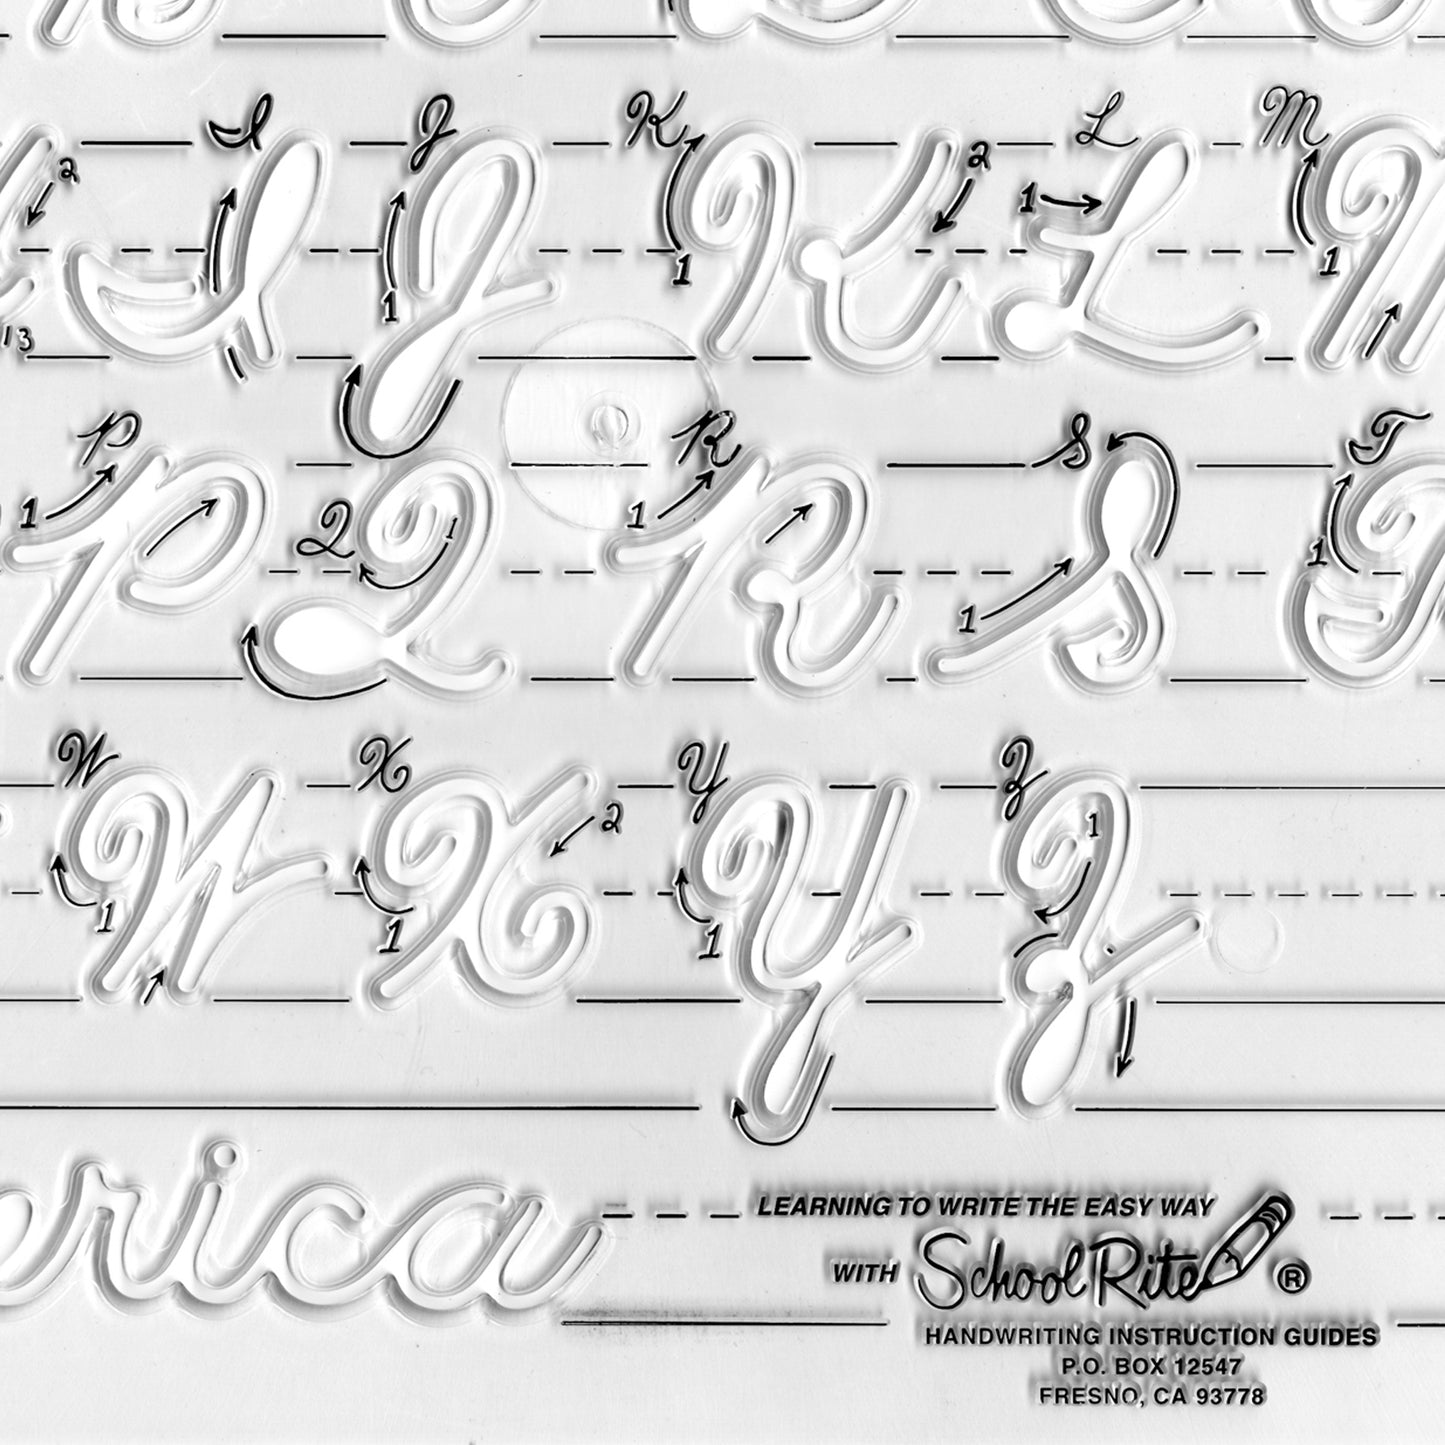 I J K L M
2 1 1 2 1 1
13
P Q R S T
1 1 1 1 1
W X Y Z
1 1 2 1 1
erica
LEARNING TO WRITE THE EASY WAY
WITH School Rite ®
HANDWRITING INSTRUCTION GUIDES
P.O. BOX 12547
FRESNO, CA 93778